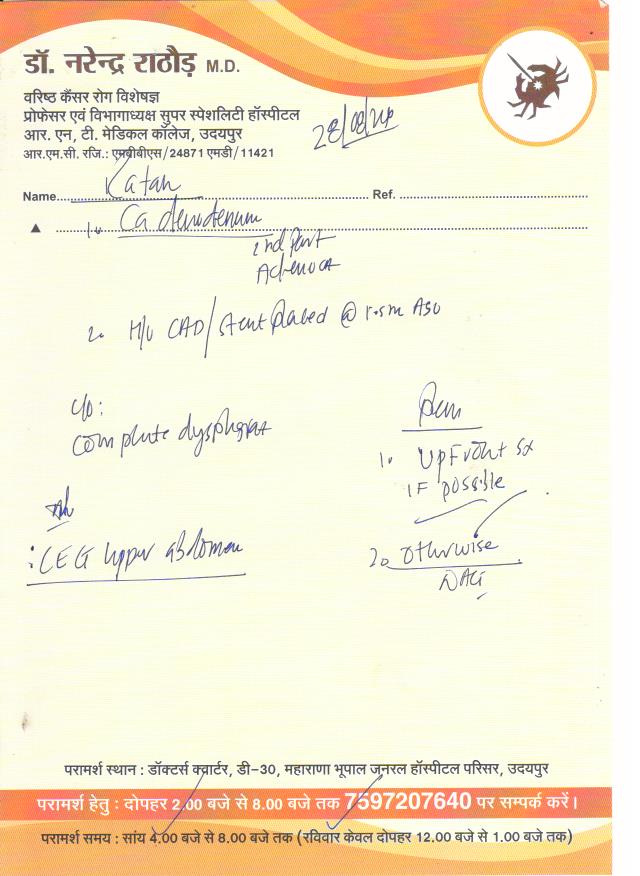 डॉ. नरेन्द्र राठौड़ M.D.
वरिष्ठ कैंसर रोग विशेषज्ञ
प्रोफेसर एवं विभागाध्यक्ष सुपर स्पेशलिटी हॉस्पीटल
आर. एन, टी. मेडिकल कॉलेज, उदयपुर
आर.एम.सी. रजि.: एमबीबीएस/24871 एमडी/11421
Name Katan Ref.
1. Ca duodenum
2nd Part
Adenoca
2. H/o CAD/stent placed @
c/o:
Complete dysphagia
Plan
1. Upfront Sx
IF possible
upper abdomen
2. otherwise
NACT
परामर्श स्थान : डॉक्टर्स क्वार्टर, डी-30, महाराणा भूपाल जनरल हॉस्पीटल परिसर, उदयपुर
परामर्श हेतु : दोपहर 2.00 बजे से 8.00 बजे तक 7597207640 पर सम्पर्क करें।
परामर्श समय : सांय 4.00 बजे से 8.00 बजे तक (रविवार केवल दोपहर 12.00 बजे से 1.00 बजे तक)